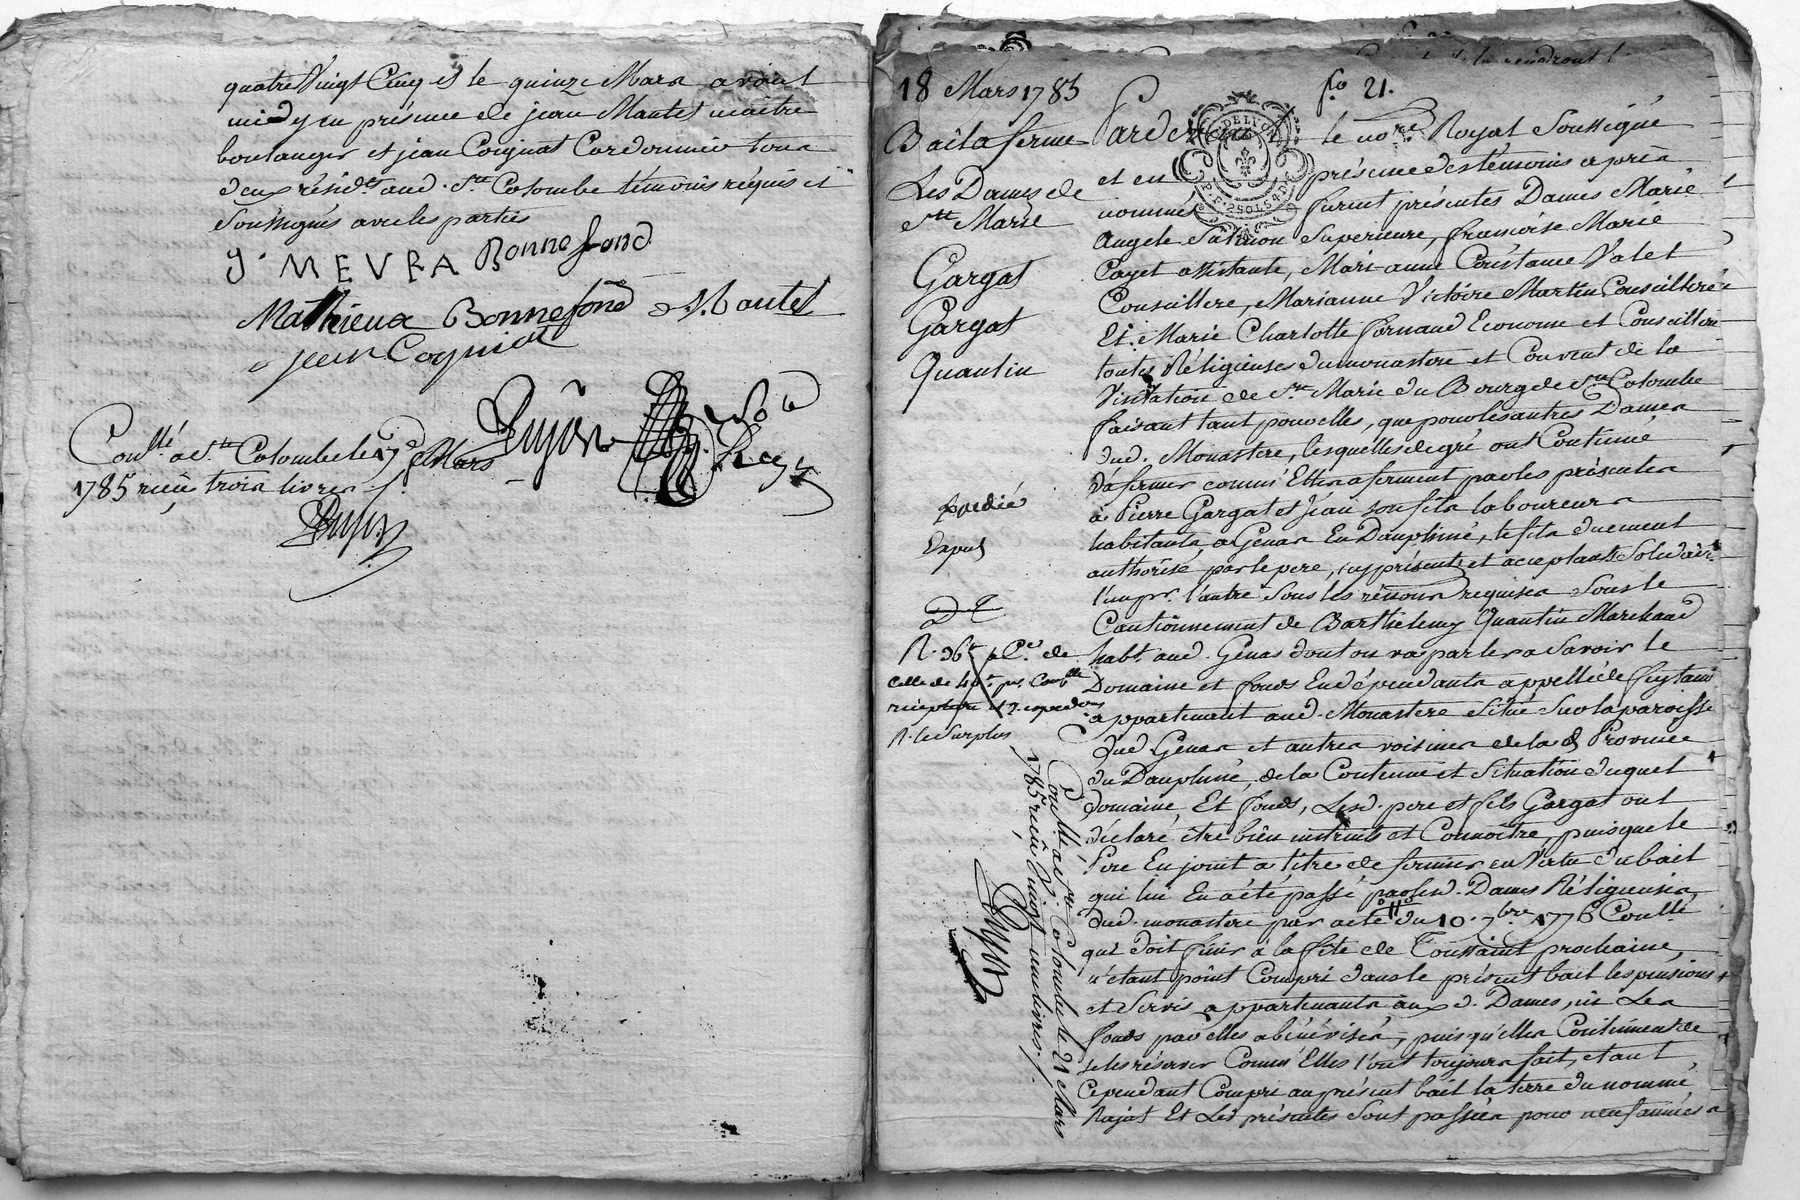 quatre Vingt Cinq et le quinze Mars avant
midy en présence de jean Mantel maitre
boulanger et jean Coignat Cordonnier tous
deux résidts aud. Ste Colombe témoins réquis et
Soussignés avec les parties
J. MEVRA Bonnefond
Mathieux Bonnefond J. Mantel
jean Cognat
Dujon
Conllé a Ste Colombe le 17 Mars
1785 reçu trois livres
Dujon
18 Mars 1785
Bail a ferme
Les Dames de
Ste Marie
Gargat
Gargat
Quantin
Expedié
celle de
réception et 2. expedons
R. le Surplus
Conllé a Ste Colombe le 21 Mars
1785 reçu Vingt une livres
Dujon
fo 21.
Pardevant le nore Royal Soussigné
et en présence des témoins après
nommés furent présentes Dames Marie
Angele Salmon Superieure, françoise Marie
Cayet assistante, Mari-anne Constance Valet
Conseillere, Marianne Victoire Martin Conseillere
Et Marie Charlotte fernaud Econome et Conseillere
toutes Réligieuses du monastere et Couvent de la
Visitation de Ste Marie du Bourg de Ste Colombe
faisant tant pour elles, que pour les autres Dames
dud. Monastere, lesquelles de gré ont Continué
d'affermer comme Elles afferment par les présentes
à Pierre Gargat et Jean son fils laboureurs
habitants a Genas En Dauphiné, le fils duement
authorisé par le pere, icy présents et acceptants Solidaire
l'un pr. l'autre Sous les rénons requises Sous le
Cautionnement de Barthelemy Quantin Marchand
habt. aud. Genas dont on va parler a Savoir le
Domaine et fonds En dépendants appellé de
appartenant aud. Monastere Situé Sur la paroisse
dud. Genas et autres voisines de lad Province
du Dauphiné, de la Contenue et Situation duquel
Domaine, Et fonds, Lesd. pere et fils Gargat ont
déclaré être bien instruits et Connoitre, puisque le
Pere En jouit a titre de fermier en Vertu du bail
qui lui En a été passé par lesd. Dames Réligieuses
dud. monastere par acte du 10. 7bre 1776 Conllé
qui doit finir à la fête de Toussaint prochaine,
n'étant point Compris dans le présent bail les pensions
et Servis appartenants aux d. Dames, ni Les
fonds par elles abénévisés, puisqu'elles Continuent de
se les réserver Comme Elles l'ont toujours fait, étant
Cependant Compris au présent bail la terre du nommé
Rajat Et Les présentes Sont passées pour neuf années